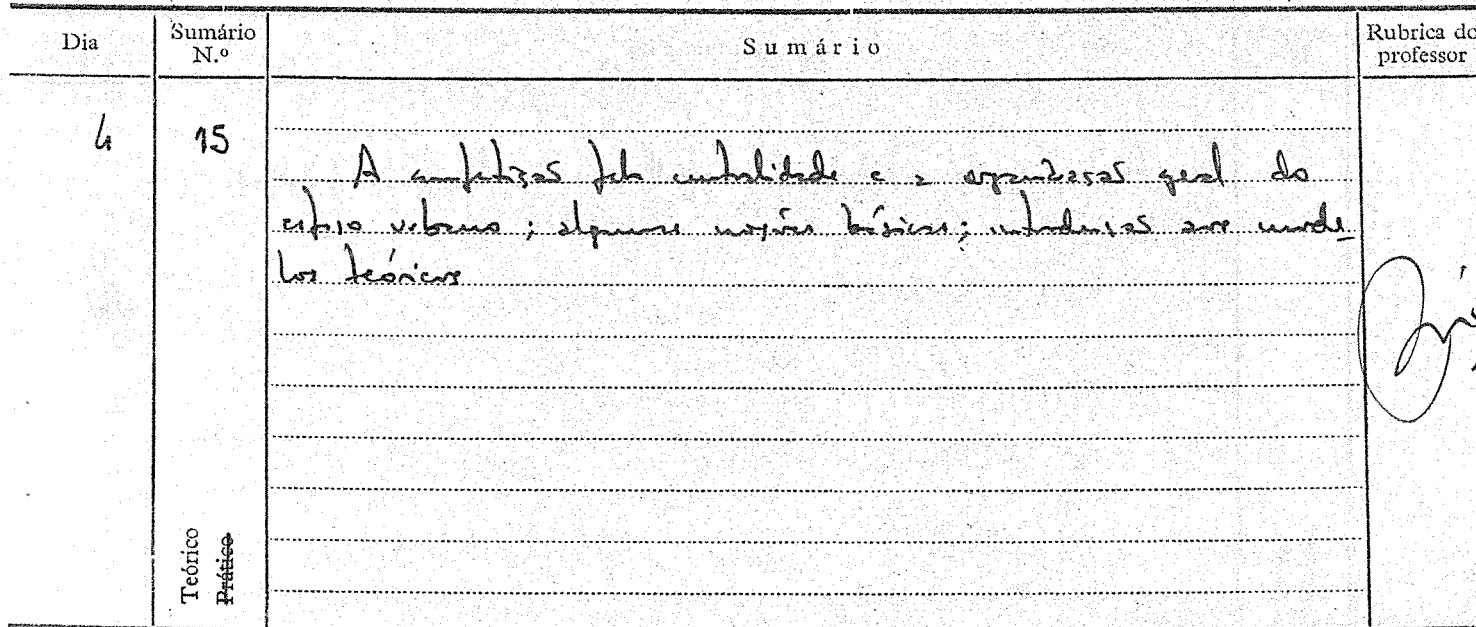 Dia
Sumário
N.º
Sumário
Rubrica do
professor
4
15
A competição pela centralidade e a organização geral do
espaço urbano; algumas noções básicas; introdução aos mode
los teóricos
Teórico
Prático